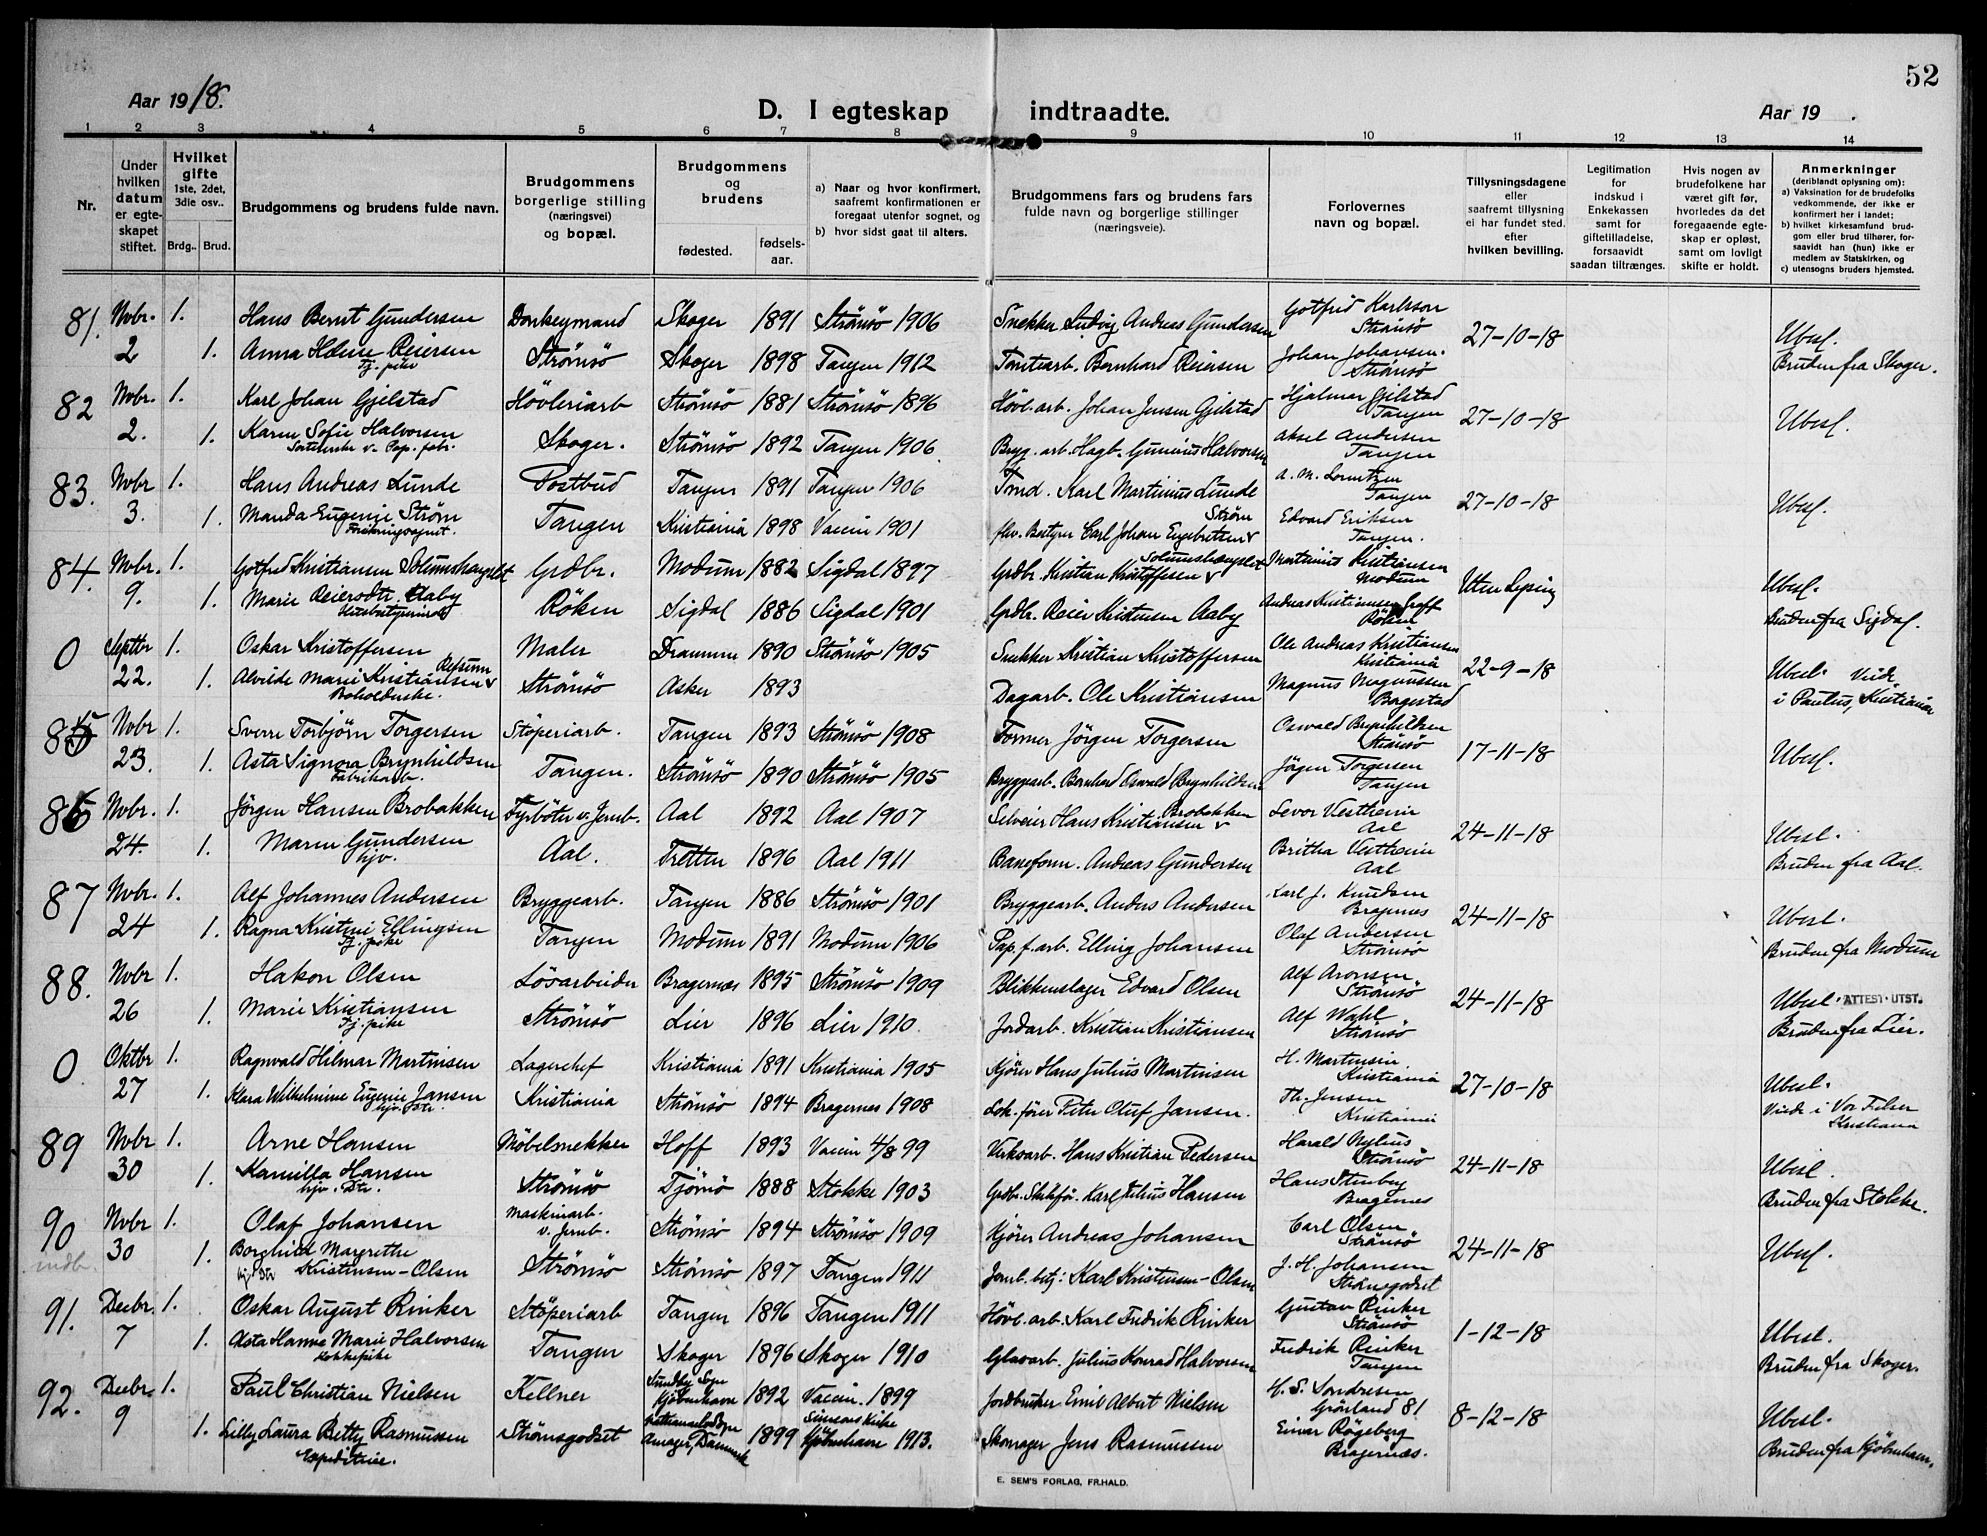 52
Aar 1918.
D. I egteskap indtraadte.
Aar 19 .
1 2 3 4 5 6 7 8 9 10 11 12 13 14
Nr.
Under hvilken datum er egteskapet stiftet.
Hvilket gifte 1ste, 2det, 3die osv..
Brdg.. Brud.
Brudgommens og brudens fulde navn.
Brudgommens borgerlige stilling (næringsvei) og bopæl.
Brudgommens og brudens
fødested. fødsels-aar.
a) Naar og hvor konfirmert, saafremt konfirmationen er foregaat utenfor sognet, og
b) hvor sidst gaat til alters.
Brudgommens fars og brudens fars fulde navn og borgerlige stillinger (næringsveie).
Forlovernes navn og bopæl.
Tillysningsdagene eller saafremt tillysning ei har fundet sted. efter hvilken bevilling.
Legitimation for indskud i Enkekassen samt for giftetilladelse, forsaavidt saadan tiltrænges.
Hvis nogen av brudefolkene har været gift før, hvorledes da det foregaaende egteskap er opløst, samt om lovligt skifte er holdt.
Anmerkninger (deriblandt oplysning om):
a) Vaksination for de brudefolks vedkommende, der ikke er konfirmert her i landet;
b) hvilket kirkesamfund brudgom eller brud tilhører, forsaavidt han (hun) ikke er medlem av Statskirken, og
c) utensogns bruders hjemsted.
81. Nvbr. 1. Hans Bernt Gundersen Donkeymand Skoger 1891 Strömsö 1906 Snekker Ludvig Andreas Gundersen Gotfred Karlsson Strömsö 27-10-18 Ubesl.
2 1. Anna Helene Reiersen Tj. pike Strömsö Skoger 1898 Tangen 1912 Tomtearb. Bernhard Reiersen Johan Johansen. Strömsö Bruden fra Skoger.
82 Nvbr. 1. Karl Johan Gjelstad Hövleriarb Strömsö 1881 Strömsö 1896 Hövl. arb. Johan Jensen Gjelstad Hjalmar Gjelstad Tangen 27-10-18 Ubesl.
2. 1. Karen Sofie Halvorsen Sorterske v. Pap. fabr. Skoger. Strömsö 1892 Tangen 1906. Bryg. arb. Hagb. Gunerius Halvorsen Aksel Andersen Tangen
83. Nvbr 1. Hans Andreas Lunde Postbud Tangen 1891 Tangen 1906 Tmd. Karl Martinius Lunde A. M. Lorentzen Tangen 27-10-18 Ubesl.
3. 1. Manda Eugenie Strøm Forsikringsagent. Tangen Kristiania 1898 Vaccin 1901 fhv. Bestyrer Carl Johan Engebretsen Strøm Edvard Eriksen Tangen.
84. Nvbr. 1. Gotfred Kristiansen Solumshaugslet Grdbr. Modum 1882 Sigdal 1897 Grdbr. Kristian Kristoffersen Solumshaugslet Martinius Kristiansen Modum Uten lysning Ubesl.
9. 1. Marie Reierdtr. Aaby Husbestyrerinde Röken Sigdal 1886 Sigdal 1901 Grdbr. Reier Kristensen Aaby Andreas Kristiansen Röken Bruden fra Sigdal.
0 Septbr 1. Oskar Kristoffersen Maler Drammen 1890 Strömsö 1905 Snekker Kristian Kristoffersen Ole Andreas Kristiansen Kristiania 22-9-18 Ubesl. Viede
22. 1. Alvilde Marie Kristiansen Refsum Bokholderske. Strömsö Asker 1893 Dagarb. Ole Kristiansen Magnus Magnussen i Paulus, Kristiania
85 Nvbr 1. Sverre Torbjörn Torgersen Stöperiarb. Tangen 1893 Strömsö 1908 Former Jörgen Torgersen Oswald Brynhildsen Strömsö 17-11-18 Ubesl.
23. 1. Asta Signora Brynhildsen Fabrikarb. Tangen. Strömsö 1890 Strömsö 1905 Bryggearb. Bernhard Oswald Brynhildsen Jörgen Torgersen Tangen
86 Nvbr. 1. Jörgen Hansen Brobakken Fyrböter v. Jernb. Aal 1892 Aal 1907 Selveier Hans Kristiansen Brobakken Levor Vestheim Aal 24-11-18 Ubesl.
24. 1. Maren Gundersen hjv. Aal. Tretten 1896 Aal 1911 Baneform. Andreas Gundersen Britha Vestheim Aal Bruden fra Aal.
87 Nvbr. 1. Alf Johannes Andersen Bryggearb. Tangen 1886 Strömsö 1901 Bryggearb. Anders Andersen Karl J. Knudsen Bragernes 24-11-18 Ubesl.
24 1. Ragna Kristine Ellingsen Tj. pike Tangen Modum 1891 Modum 1906 Pap. f. arb. Elling Johansen Olaf Andersen Strömsö Bruden fra Modum
88. Nvbr 1. Hakon Olsen Lösarbeider Bragernæs 1895 Strömsö 1909 Blikkenslager Edvard Olsen Alf Aronsen Strömsö 24-11-18 Ubesl. ATTEST UTST.
26 1. Marie Kristiansen Tj. pike Strömsö Lier 1896 Lier 1910. Jordarb. Kristian Kristiansen Alf Wahl Strömsö Bruden fra Lier.
0 Oktbr 1. Ragnvald Hilmar Martinsen Lagerchef Kristiania 1891 Kristiania 1905 Kjörer Hans Julius Martinsen H. Martinsen Kristiania 27-10-18 Ubesl.
27 1. Klara Wilhelmine Eugenie Jansen hjv. Dtr. Kristiania Strömsö 1894 Bragernes 1908 Lok. förer Peter Oluf Jansen. Th. Jensen Kristiania Viede i Vor Frelser Kristiania
89 Nvbr 1. Arne Hansen Möbelsnekker Hoff 1893 Vaccin 4/8 99 Verksarb. Hans Kristian Pedersen Harald Nylius Strömsö 24-11-18 Ubesl.
30 1. Kamilla Hansen hjv. Dtr. Strömsö Tjömö 1888 Stokke 1903 Karl Julius Hansen Hans Stenberg Bragernes Bruden fra Stokke.
90 Nvbr 1. Olaf Johansen Maskinarb. v. Jernb. Strömsö 1894 Strömsö 1909 Kjörer Andreas Johansen Carl Olsen Strömsö 24-11-18 Ubesl.
indb. 30 1. Borghild Margrethe Kristensen-Olsen hjv Dtr Strömsö Strömsö 1897 Tangen 1911 Jernb. betj: Karl Kristensen-Olsen J. H. Johansen Strömsgodset
91. Decbr. 1. Oskar August Rinker Stöperiarb Tangen 1896 Tangen 1911 Hövl. arb. Karl Fredrik Rinker Gustav Rinker Strömsö 1-12-18 Ubesl.
7 1. Asta Hanna Marie Halvorsen Kokkepike Tangen Skoger 1896 Skoger 1910 Glasarb. Julius Konrad Halvorsen Fredrik Rinker Tangen Bruden fra Skoger.
92. Decbr. 1. Paul Christian Nielsen Kellner Sundby Sogn Kjöbenhavn 1892 Vaccin. 1899 Jordbruker Emil Albert Nielsen H. S. Sondresen Grönland 81 8-12-18 Ubesl.
9 1. Lilly Laura Betty Rasmussen Expeditrise. Strömsgodset Amager, Danmark 1899 Simeons Kirke Kjöbenhavn 1913. Skomager Jens Rasmussen Einar Rögeberg Bragernæs. Bruden fra Kjöbenhavn.
E. SEM'S FORLAG, FR.HALD.